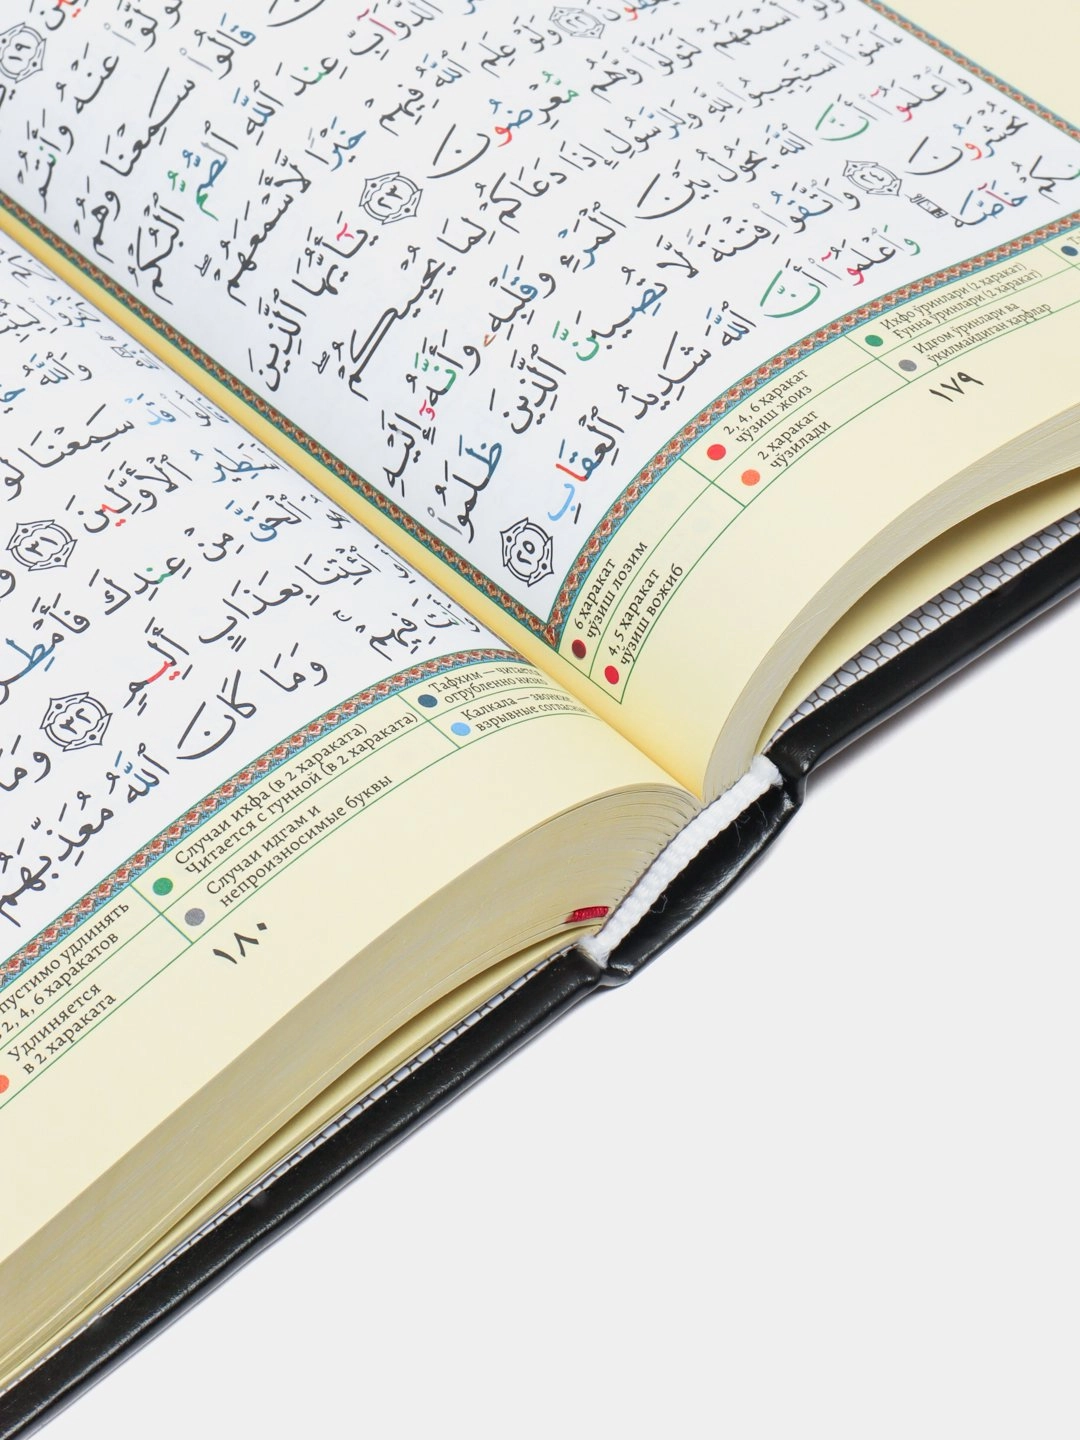 ١٩
تَوَلَّوْا۟ عَنْهُ وَأَنتُمْ
قَالُوا۟ سَمِعْنَا وَهُمْ
ٱلدَّوَآبِّ عِندَ ٱللَّهِ ٱلصُّمُّ ٱلْبُكْمُ
يَعْقِلُونَ ٢٢ وَلَوْ عَلِمَ ٱللَّهُ فِيهِمْ خَيْرًا لَّأَسْمَعَهُمْ ۖ
وَلَوْ أَسْمَعَهُمْ لَتَوَلَّوا۟ وَّهُم مُّعْرِضُونَ ٢٣ يَـٰٓأَيُّهَا ٱلَّذِينَ
ءَامَنُوا۟ ٱسْتَجِيبُوا۟ لِلَّهِ وَلِلرَّسُولِ إِذَا دَعَاكُمْ لِمَا يُحْيِيكُمْ ۖ
وَٱعْلَمُوٓا۟ أَنَّ ٱللَّهَ يَحُولُ بَيْنَ ٱلْمَرْءِ وَقَلْبِهِۦ وَأَنَّهُۥٓ إِلَيْهِ
تُحْشَرُونَ ٢٤ وَٱتَّقُوا۟ فِتْنَةً لَّا تُصِيبَنَّ ٱلَّذِينَ ظَلَمُوا۟
خَآصَّةً ۖ وَٱعْلَمُوٓا۟ أَنَّ ٱللَّهَ شَدِيدُ ٱلْعِقَابِ ٢٥
6 харакат
чўзиш лозим
4, 5 харакат
чўзиш вожиб
2, 4, 6 харакат
чўзиш жоиз
2 харакат
чўзилади
Ихфо ўринлари (2 харакат)
Ғунна ўринлари (2 харакат)
Идғом ўринлари ва
ўқилмайдиган ҳарфлар
١٧٩
وَٱللَّهُ
قَدْ سَمِعْنَا لَوْ
ٱلْأَوَّلِينَ ٣١
ٱلْحَقَّ مِنْ عِندِكَ فَأَمْطِرْ
ٱئْتِنَا بِعَذَابٍ أَلِيمٍ ٣٢ وَمَا
فِيهِمْ ۚ وَمَا كَانَ ٱللَّهُ مُعَذِّبَهُمْ
пустимо удлинять
2, 4, 6 харакатов
Удлиняется
в 2 хараката
Случаи ихфа (в 2 хараката)
Читается с гунной (в 2 хараката)
Случаи идгам и
непроизносимые буквы
Тафхим — читается
огрубленно низко
Калкала — звонкие
взрывные согласные
١٨٠